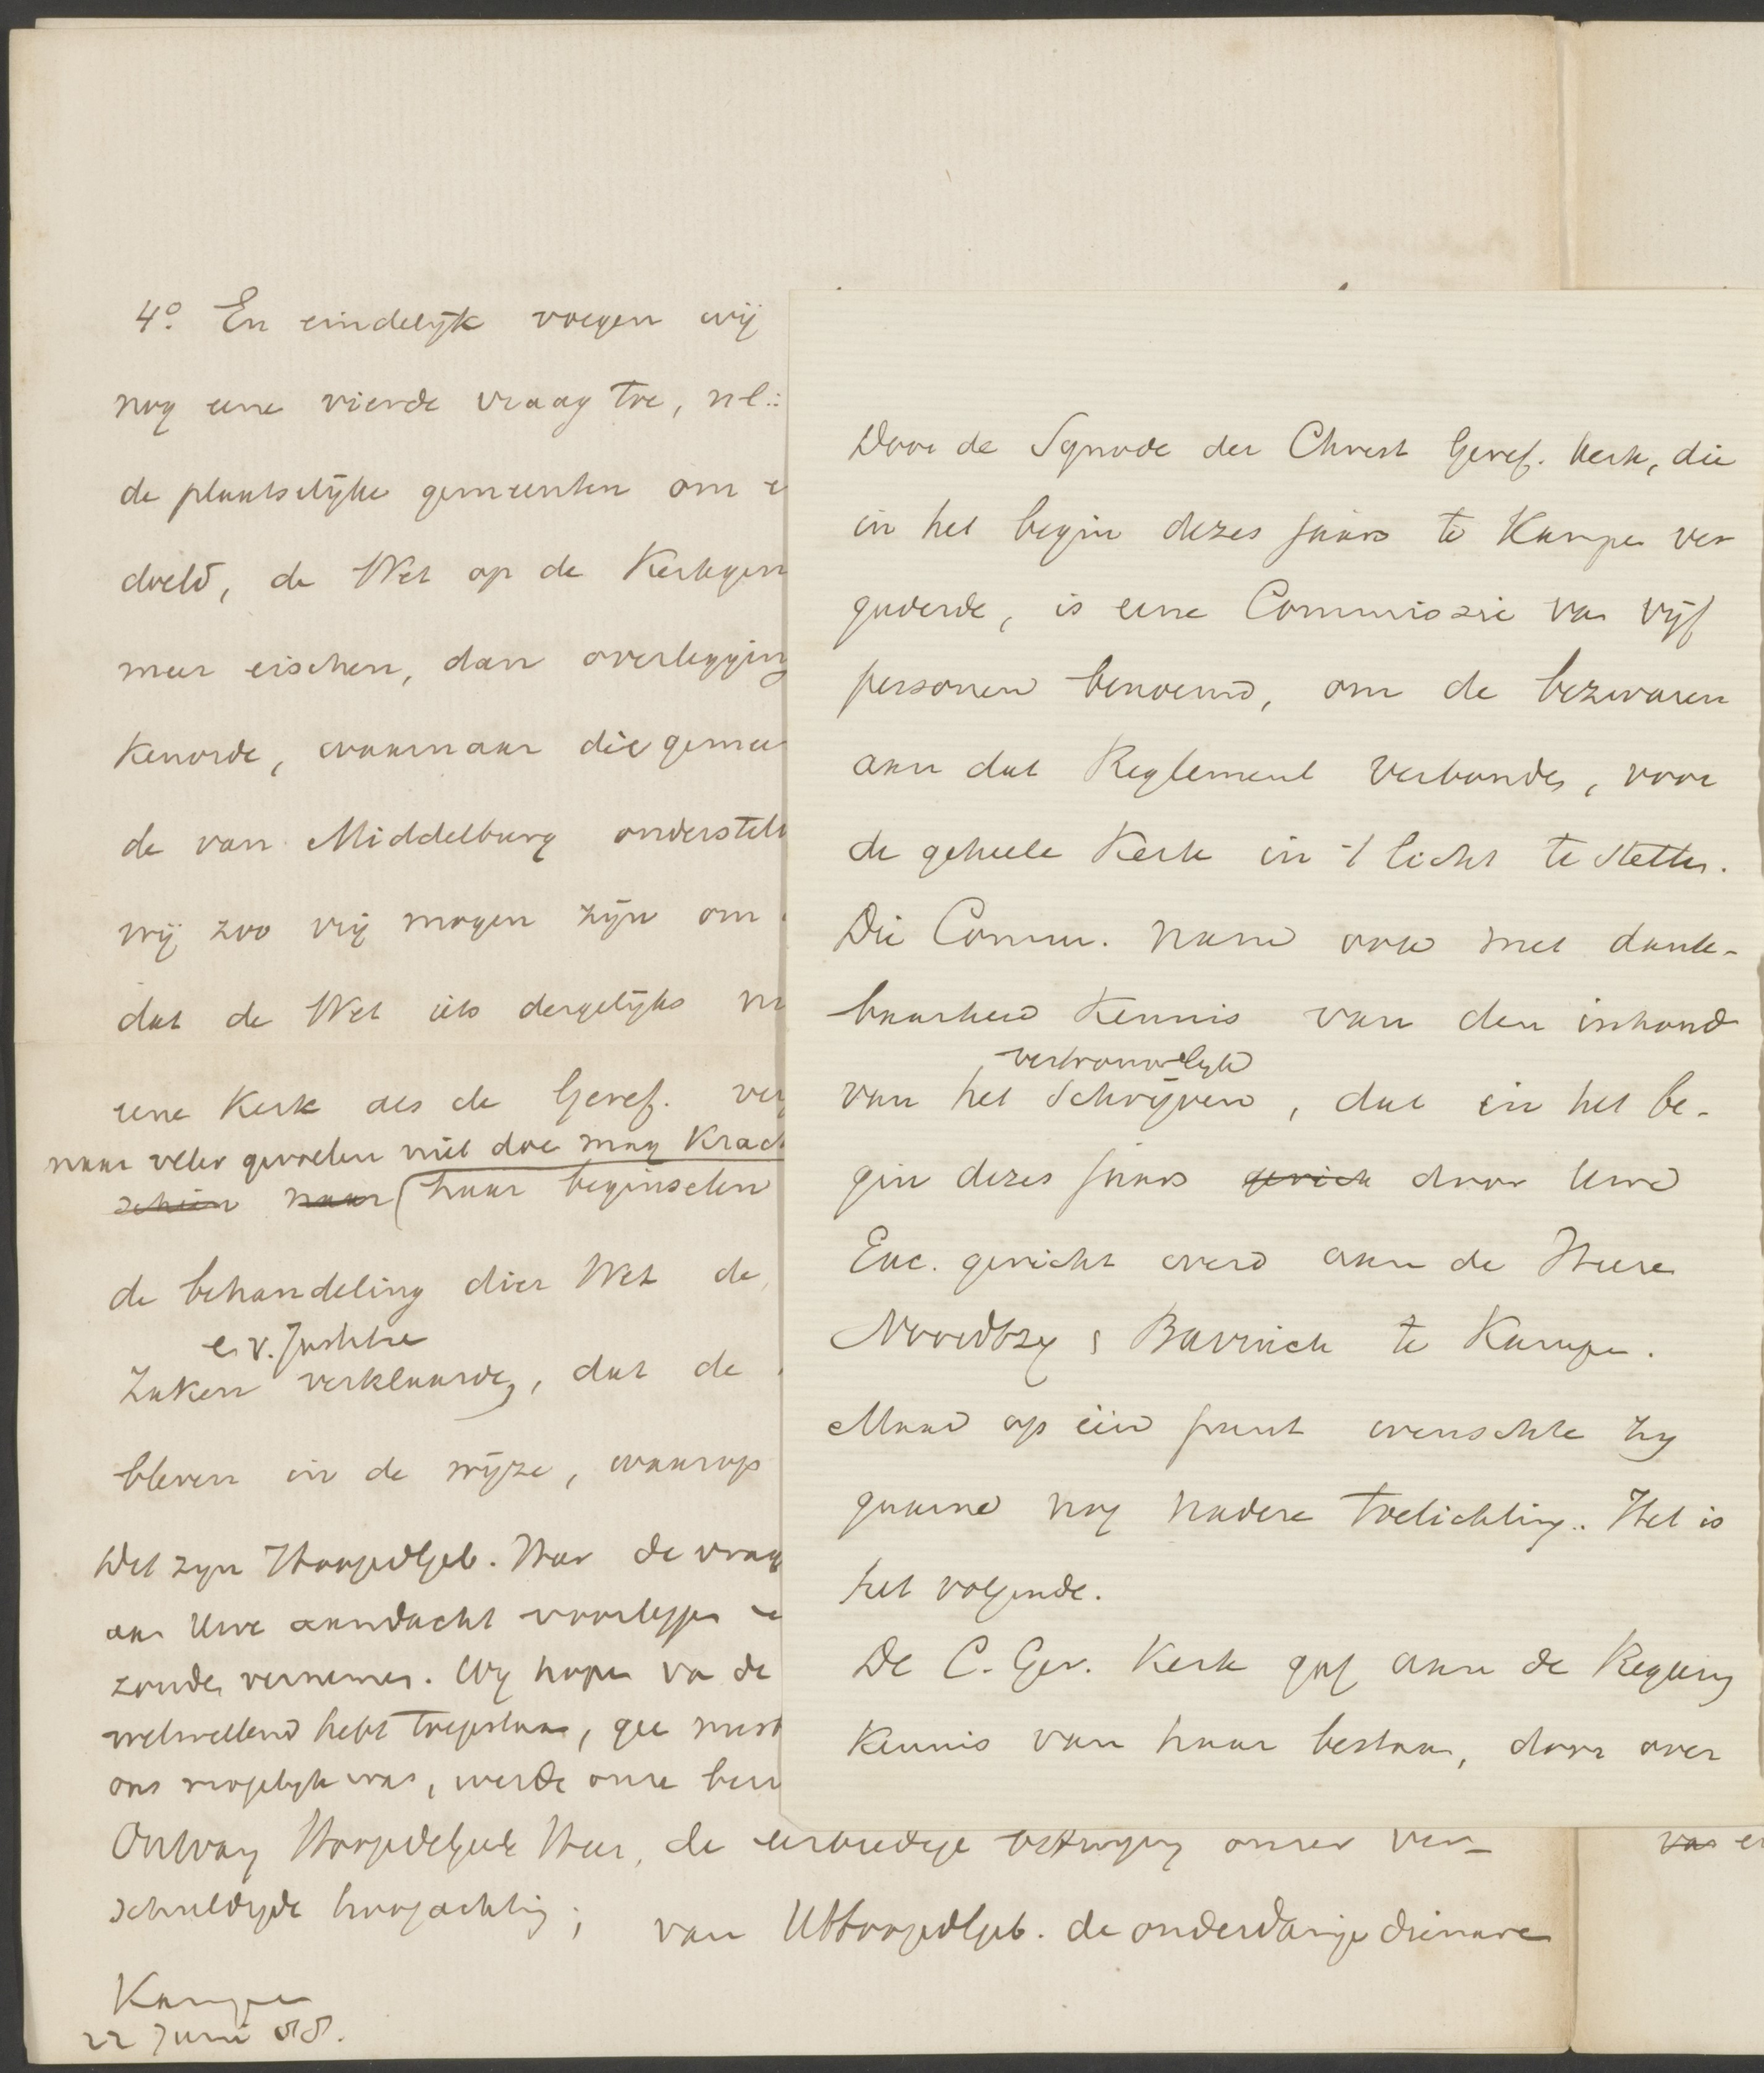 4º. En eindelijk voegen wij
nog eene vierde vraag toe, nl.:
de plaatselijke gemeenten om e
doeld, de Wet op de Kerkgen
meer eischen, dan overlegging
Kenorde, waarnaar die gemee
de van Middelburg onderstel
wij zoo vrij mogen zijn om
dat de Wet iets dergelijks
eene Kerk als de Geref. ver
naar veler gevoelen niet doen mag Krach
schien naar haar beginselen
de behandeling dier Wet de
e. v. Justitie
Zaken verklaarde, dat de
bleven in de wijze, waarop
Het zijn HoogEdlGeb. Heer de vraag
aan Uwe aandacht voorleggen
zouden vernemen. Wij hopen van de
welwillend hebt toegestaan, gee
ons mogelijk was, werde onze
Ontvang HoogEdelGeb Heer, de eerbiedige betuiging onzer ver-
schuldigde hoogachting;
van UHoogEdlGeb. de onderdanige dienaren
Kampen
22 Juni 88.
Door de Synode der Christ Geref. Kerk, die
in het begin dezes jaars te Kampen ver
gaderde, is eene Commissie van vijf
personen benoemd, om de bezwaren
aan dat Reglement verbonden, voor
de geheele Kerk in 't licht te stellen.
Die Comm. nam ook met dank-
baarheid Kennis van den inhoud
vertrouwelijk
van het Schrijven, dat in het be-
gin dezes jaars gerich door Uwe
Exc. gericht werd aan de Heeren
Noordtzij & Bavinck te Kampen.
Maar op één punt wenschte zij
gaarne nog nadere toelichting. Het is
het volgende.
De C. Ger. Kerk gaf aan de Regering
Kennis van haar bestaan, door over
van